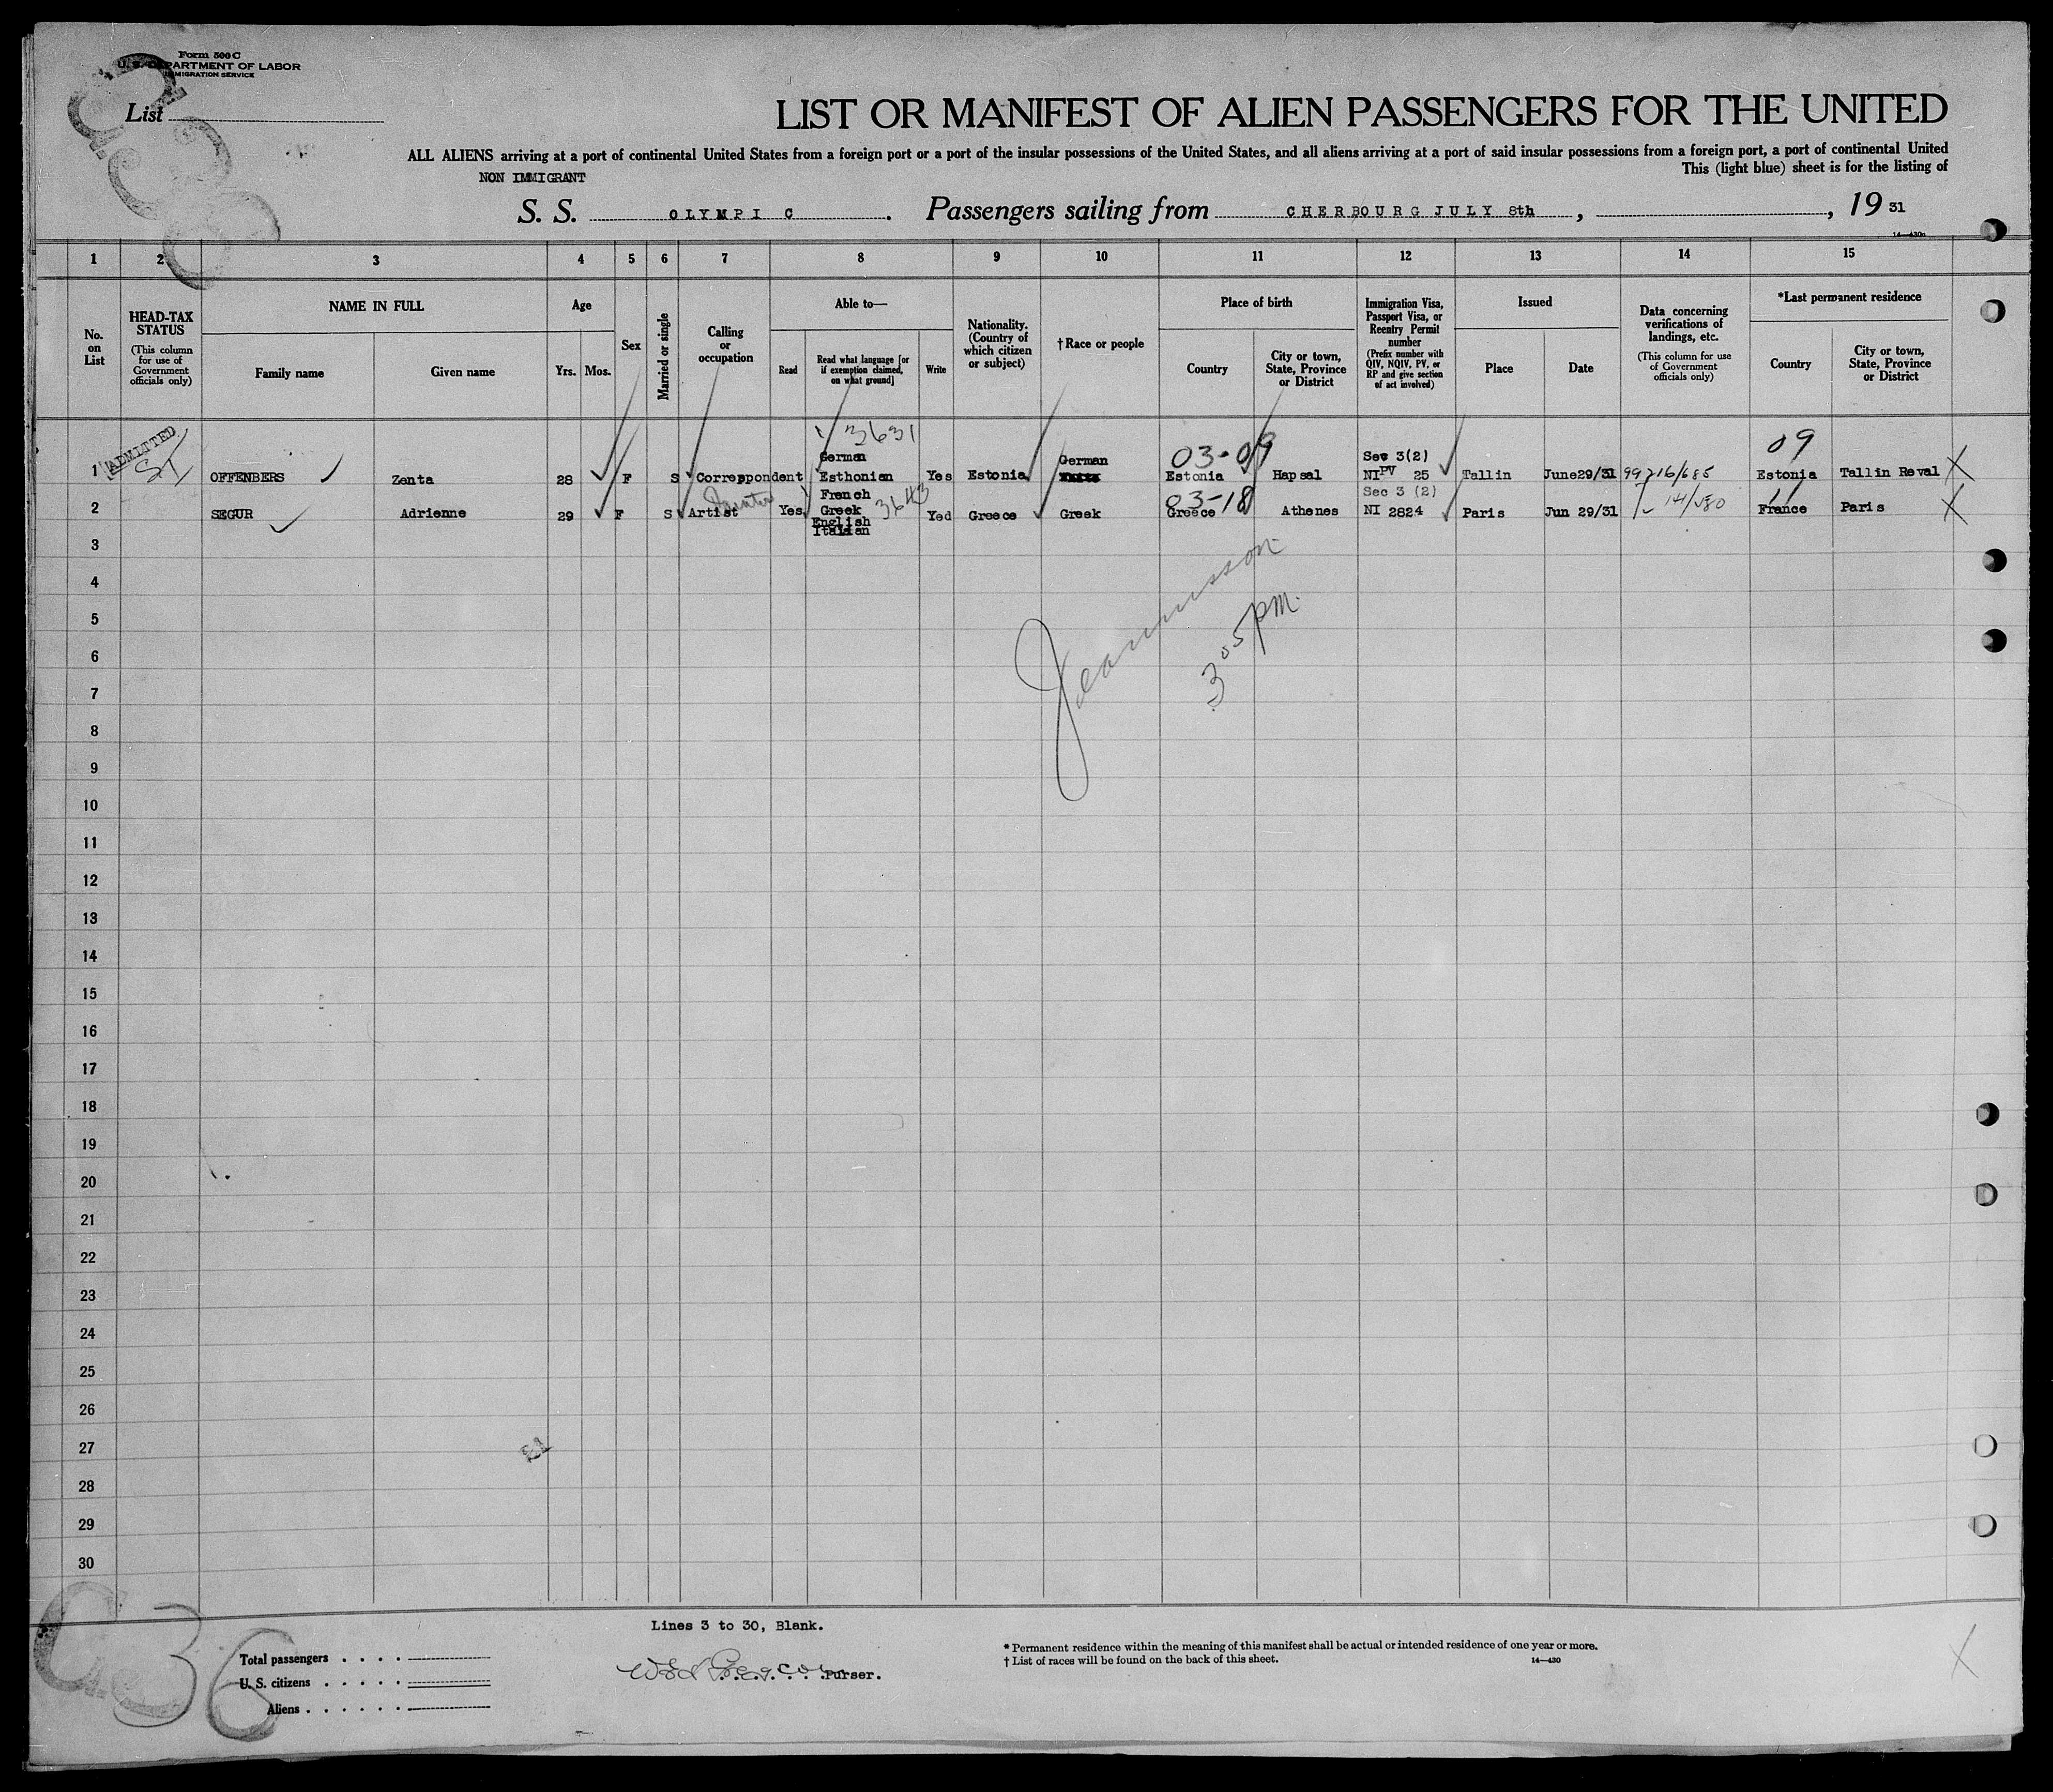 Form 500 C
U. S. DEPARTMENT OF LABOR
IMMIGRATION SERVICE
List
LIST OR MANIFEST OF ALIEN PASSENGERS FOR THE UNITED
ALL ALIENS arriving at a port of continental United States from a foreign port or a port of the insular possessions of the United States, and all aliens arriving at a port of said insular possessions from a foreign port, a port of continental United
NON IMMIGRANT
This (light blue) sheet is for the listing of
S. S. OLYMPIC . Passengers sailing from CHERBOURG JULY 8th , , 19 31
14-430a
1 2 3 4 5 6 7 8 9 10 11 12 13 14 15
No. on List
HEAD-TAX STATUS
(This column for use of Government officials only)
NAME IN FULL
Family name
Given name
Age
Yrs. Mos.
Sex
Married or single
Calling or occupation
Able to—
Read
Read what language [or if exemption claimed, on what ground]
Write
Nationality. (Country of which citizen or subject)
† Race or people
Place of birth
Country
City or town, State, Province or District
Immigration Visa, Passport Visa, or Reentry Permit number
(Prefix number with QIV, NQIV, PV, or RP and give section of act involved)
Issued
Place
Date
Data concerning verifications of landings, etc.
(This column for use of Government officials only)
*Last permanent residence
Country
City or town, State, Province or District
3631
ADMITTED
03-09
09
German German Sec 3(2)
1 OFFENBERS Zenta 28 F S Correspondent Esthonian Yes Estonia Estonia Hapsal NI PV 25 Tallin June29/31 99216/685 Estonia Tallin Reval X
French 3643 03-18 Sec 3 (2)
2 SEGUR Adrienne 29 F S Artist Yes Greek Yed Greece Greek Greece Athenes NI 2824 Paris Jun 29/31 France Paris X
English
Italian
3
4
5
6
7
8
9
10
11
12
13
14
15
16
17
18
19
20
21
22
23
24
25
26
27
28
29
30
3 05 pm.
Lines 3 to 30, Blank.
Total passengers
U. S. citizens
Aliens
Purser.
* Permanent residence within the meaning of this manifest shall be actual or intended residence of one year or more.
† List of races will be found on the back of this sheet.
14—430
36
X